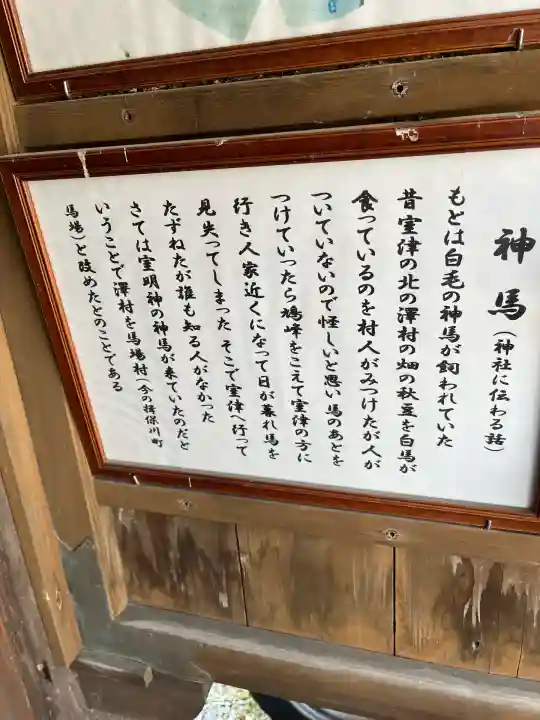 神馬(神社に伝わる話)
もとは白毛の神馬が飼われていた
昔室津の北の澤村の畑の秋豆を白馬が
食っているのを村人がみつけたが人が
ついていないので怪しいと思い馬のあとを
つけていったら鳩峰をこえて室津の方に
行き人家近くになって日が暮れ馬を
見失ってしまった そこで室津へ行って
たずねたが誰も知る人がなかった
さては室明神の神馬が来ていたのだと
いうことで澤村を馬場村(今の揖保川町
馬場)と改めたとのことである